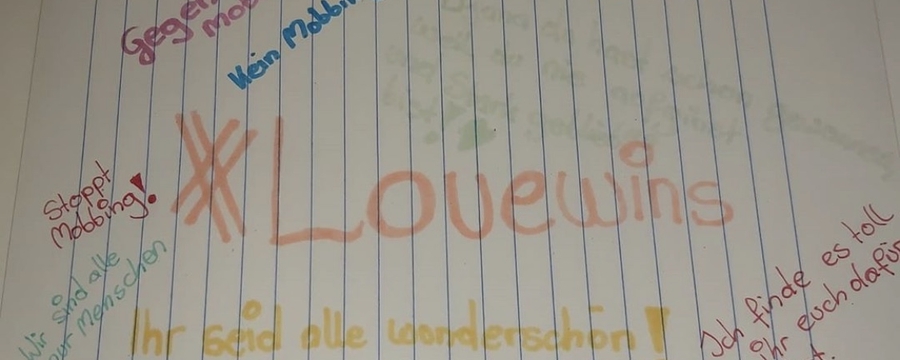 Gegen
Kein Mobbing
#Lovewins
Stoppt
Mobbing!
Wir sind alle
nur Menschen
Ihr seid alle wonderschön!
Ich finde es toll
ihr euch dafür